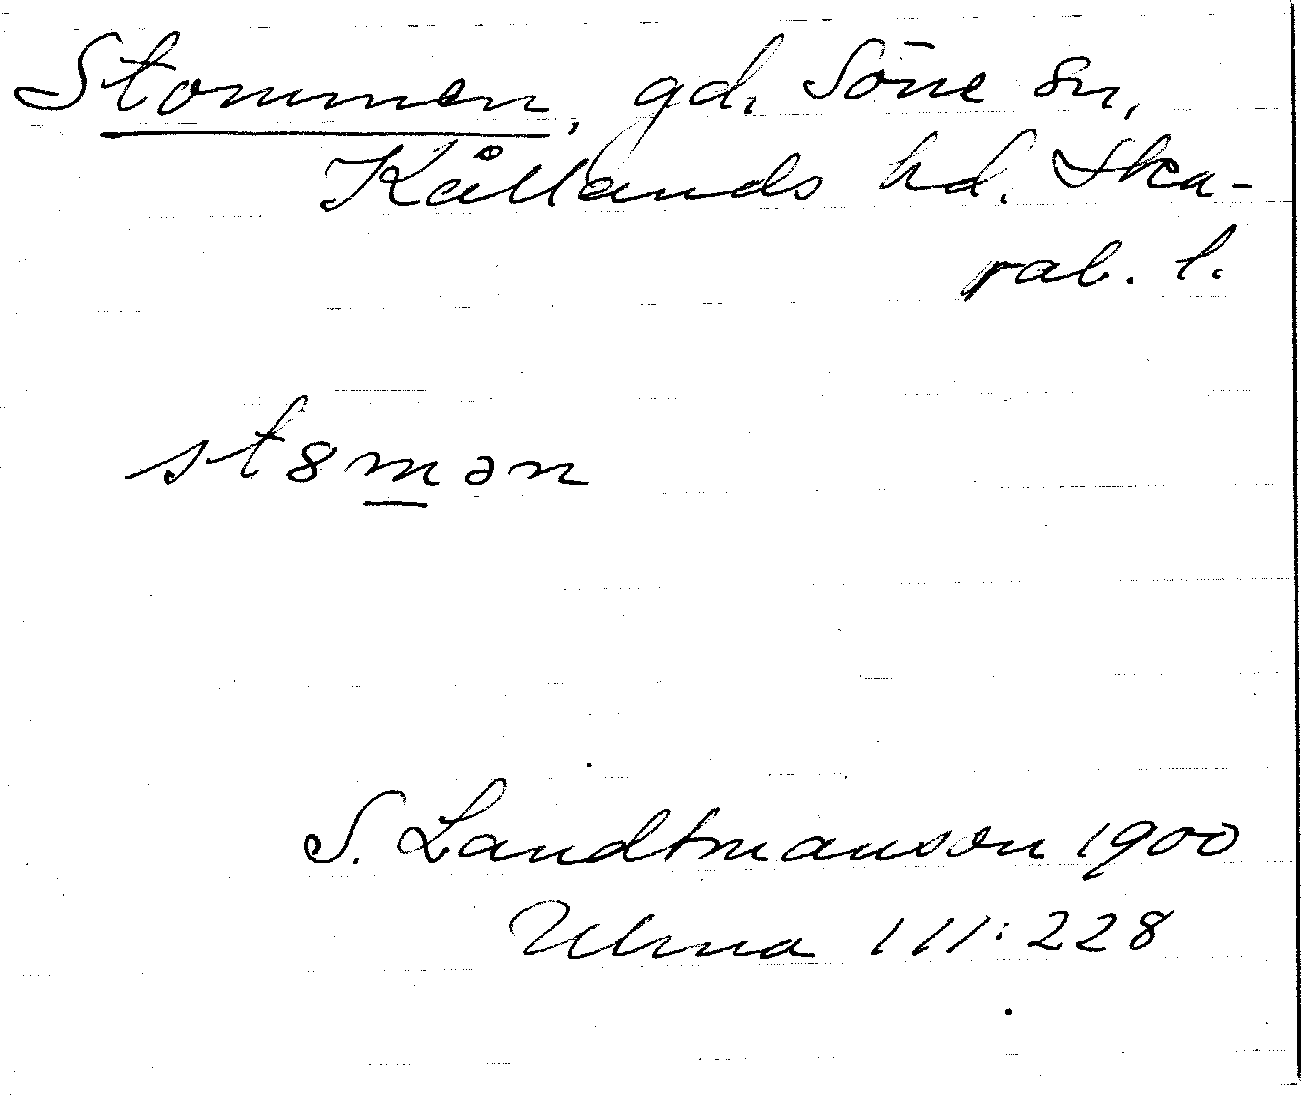 Stommen, gd, Söne sn,
Kållands hd. Ska-
rab. l.
st8mən
S. Landtmanson 1900
Ulma 111:228